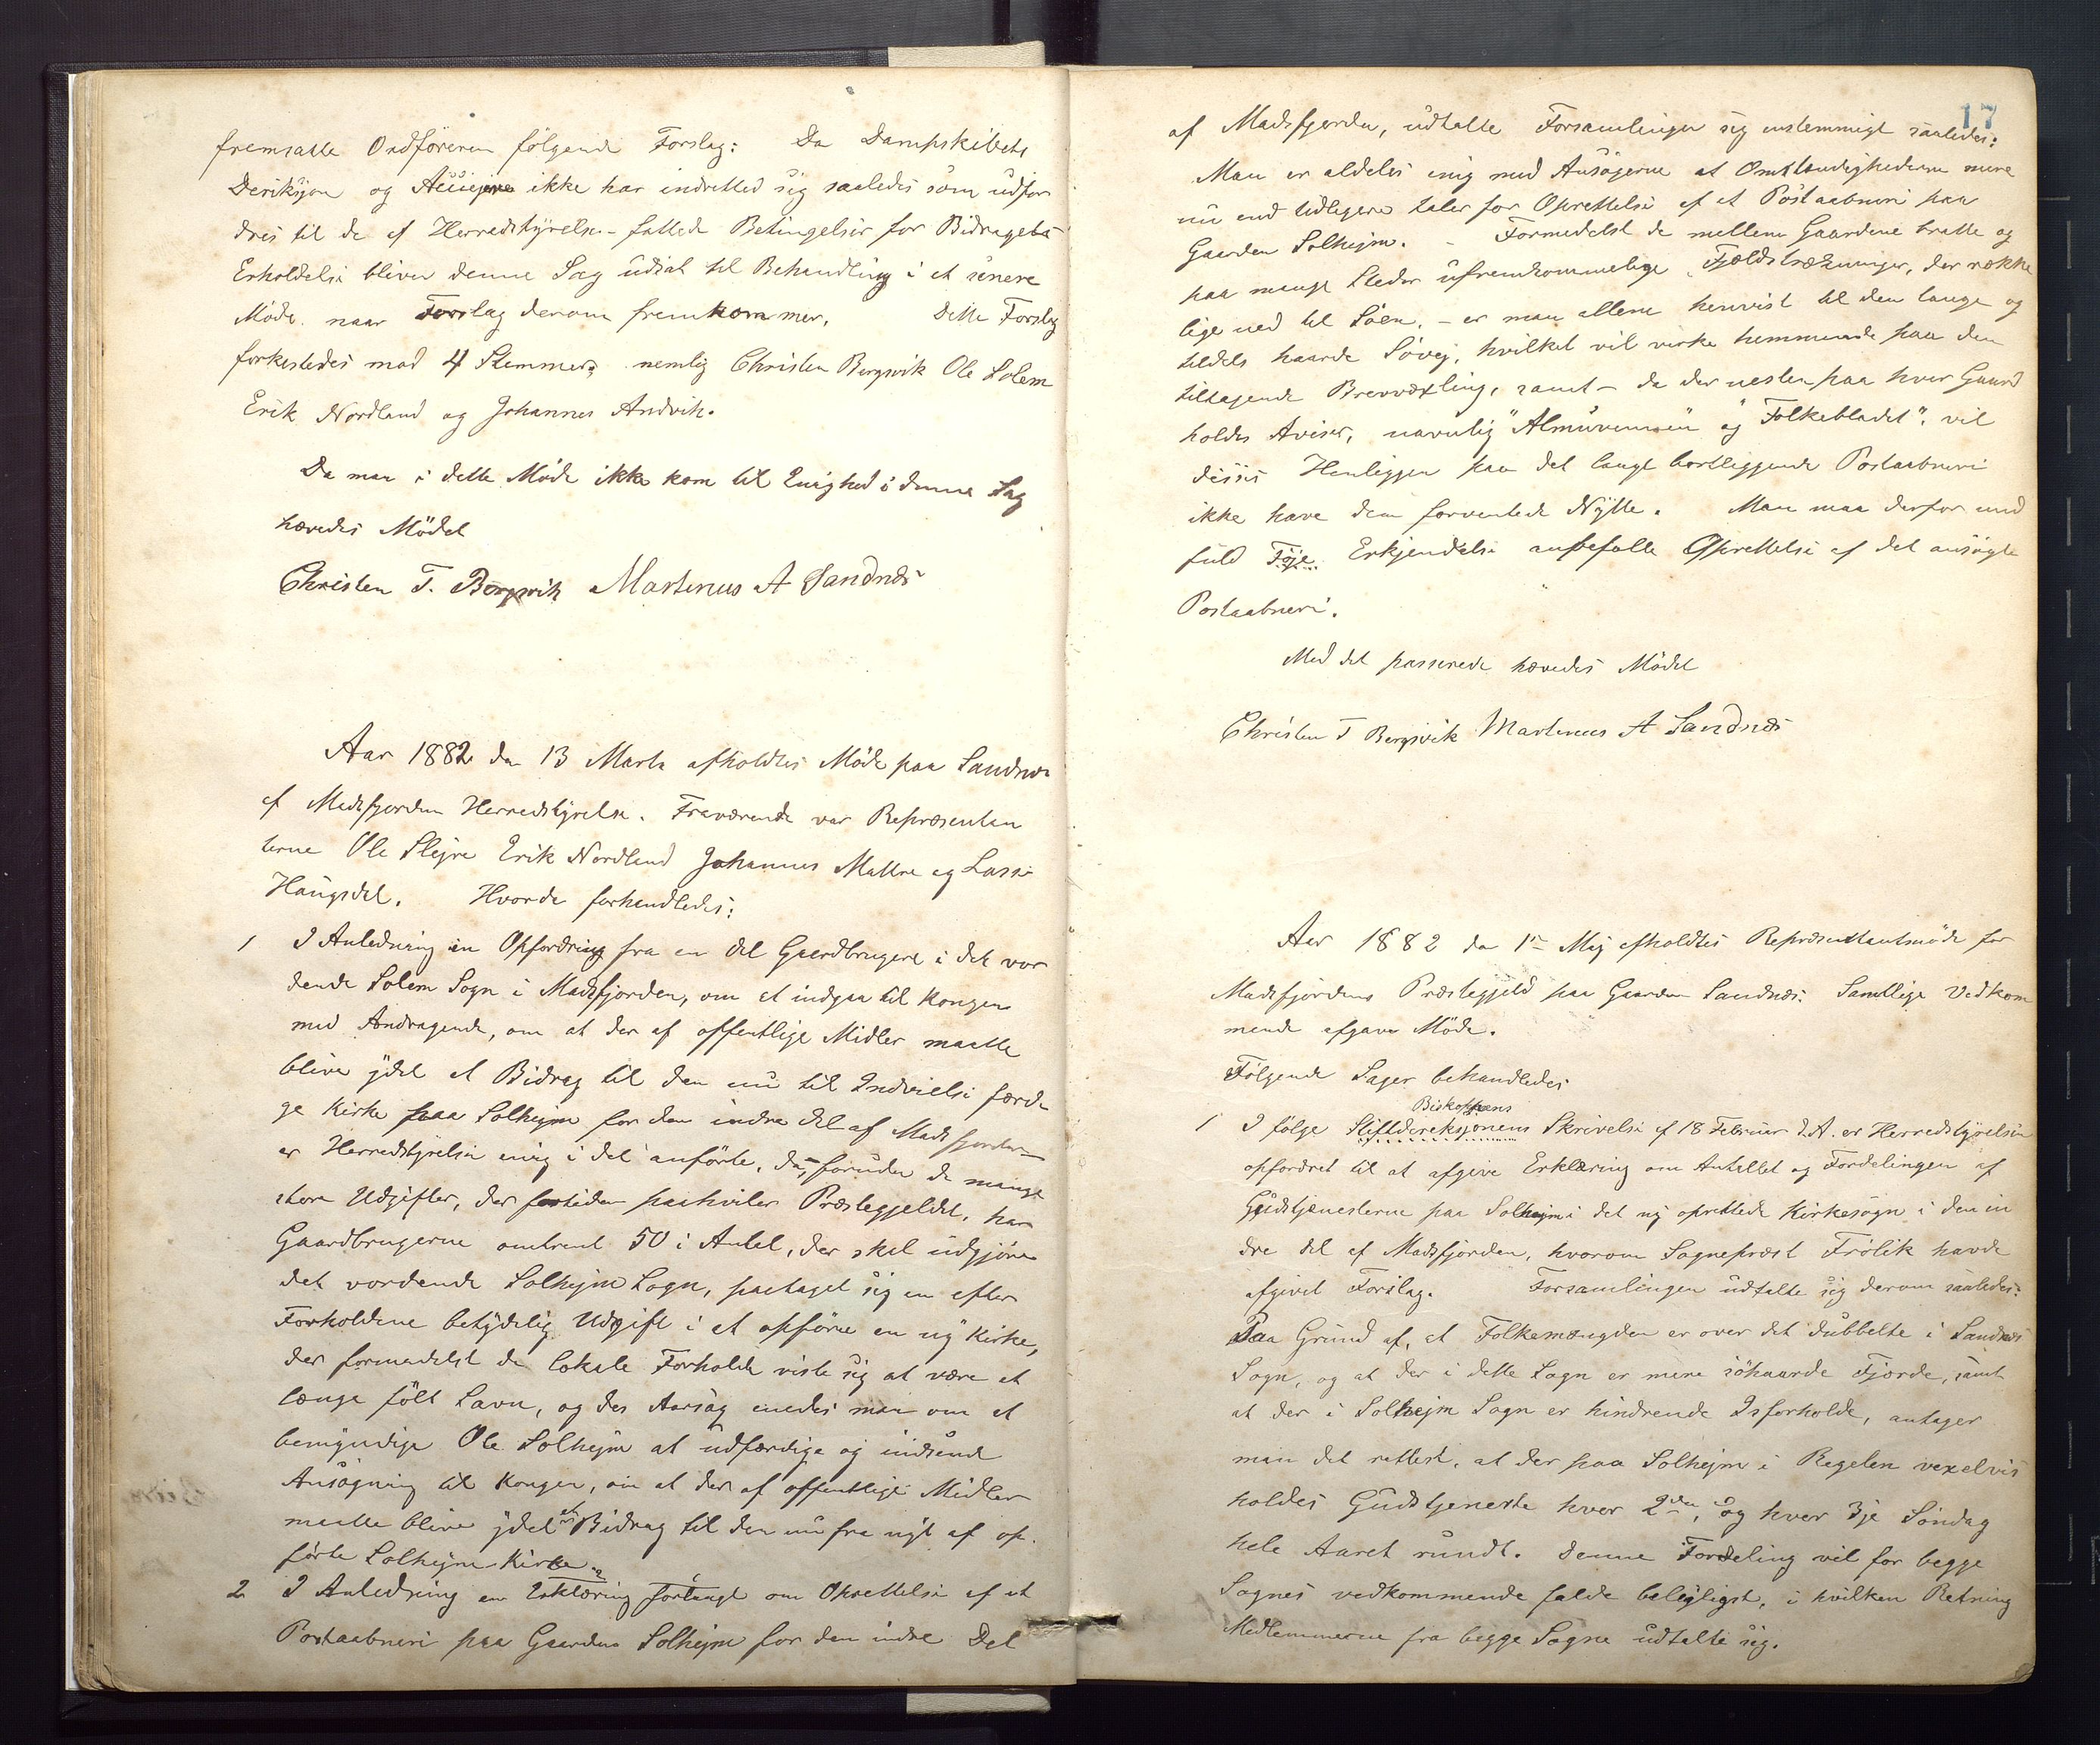 fremsatte Ordföreren fölgende Forslag: Da Dampskibets
Dereksjon og ikke har indrettet sig saaledes som udfor
dres til de af Herredstyrelsen fattede Betingelser for Bidragets
Erholdelse bliver denne Sag udsat til Behandling i et senere
Möde naar Forslag derom fremkommer. Dette Forslag
forkastedes mod 4 Stemmer, nemlig Christen Bergsvik Ole Solem
Erik Nordland og Johannes Andvik.
Da man i dette Möde ikke kom til Enighed i denne Sag
hævedes Mödet
Christen T. Bergsvik Martinus A Sandnæs
Aar 1882 den 13 Marts afholdtes Möde paa Sandnæs
af Madsfjorden Herredstyrelse. Fraværende var Repræsentan
terne Ole Slejre Erik Nordland Johannes Mattre og Lasse
Haugsdal. Hvorda forhandledes:
1 I Anledning en Opfordring fra en del Gaardbrugere i det vor
dende Solem Sogn i Madsfjorden, om at indgaa til Kongen
med Andragende, om at der af offentlige Midler maatte
blive ydet et Bidrag til den nu til Indvielse færdi
ge Kirke paa Solhejm for den indre del af Madsfjorden
er Herredstyrelsen enig i det anförte, da, foruden de mange
store Udgifter, der fortiden paahviler Præstegjeldet, har
Gaardbrugerne omtrent 50 i Antal, der skal udgjöre
det vordende Solhejm Sogn, paataget sig en efter
Forholdene betydelig Udgift i at opföre en ny Kirke,
der formedelst de lokale Forholde viste sig at være et
længe fölt Savn, og des Aarsag enedes man om at
bemyndige Ole Solhejm at udfærdige og indsende
Ansögning til Kongen, om at der af offentlige Midler
maatte blive ydet et Bidrag til den nu fra nyt af op
förte Solhejm Kirke
2 I Anledning en Erklæring forlangt om Oprettelse af et
Postaabneri paa Gaarden Solhejm for den indre Del
17
af Madsfjorden, udtalte Forsamlingen sig enstemmigt saaledes:
Man er aldeles enig med Ansögerne at Omstændighederne mere
nu end tidligere taler for Oprettelse af et Postaabneri paa
Gaarden Solhejm. - Formedelst de mellem Gaardene bratte og
paa mange Steder ufremkommelige Fjeldstrækninger, der række
lige ned til Söen, - er man allene henvist til den lange og
tildels haarde Sövej, hvilket vil virke hemmende paa den
tiltagende Brevvexling, samt - da der nesten paa hver Gaard
holdes Aviser, navnlig "Almuvennen" og "Folkebladet", vil
disses Henliggen paa det langt bortliggende Postaabneri
ikke have den forventede Nytte. Man maa derfor med
fuld Föje Erkjendelse anbefalle Oprettelse af det ansögte
Postaabneri.
Med det passerede hævedes Mödet
Christen T Bergsvik Martinus A Sandnæs
Aar 1882 den 1ste Maj afholdtes Repræsentantmöde for
Madsfjordens Præstegjeld paa Gaarden Sandnæs. Samtlige Vedkom
mende afgave Möde.
Fölgende Sager behandledes
Biskoppens
1 I fölge Stiftdereksjonens Skrivelse af 18 Februar d.A. er Herredstyrelsen
opfordret til at afgive Erklæring om Antallet og Fordelingen af
Gudstjenesterne paa Solhejm i det ny oprettede Kirkesogn i den in
dre del af Madsfjorden, hvorom Sognepræst Frölik havde
afgivet Forslag. Forsamlingen udtalte sig derom saaledes:
Paa Grund af, at Folkemængden er over det dubbelte i Sandnæs
Sogn, og at der i dette Sogn er mere söhaarde Fjorde, samt
at der i Solhejm Sogn er hindrende Isforholde, antager
man det rettest, at der paa Solhejm i Regelen vexelvis
holdes Gudstjeneste hver 2den, og hver 3je Söndag
hele Aaret rundt. Denne Fordeling vil for begge
Sognes vedkommende falde belejligst, i hvilken Retning
Medlemmerne fra begge Sogne udtalte sig.